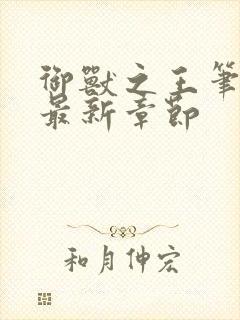 御獸之王筆
最新章節
和月伸宏